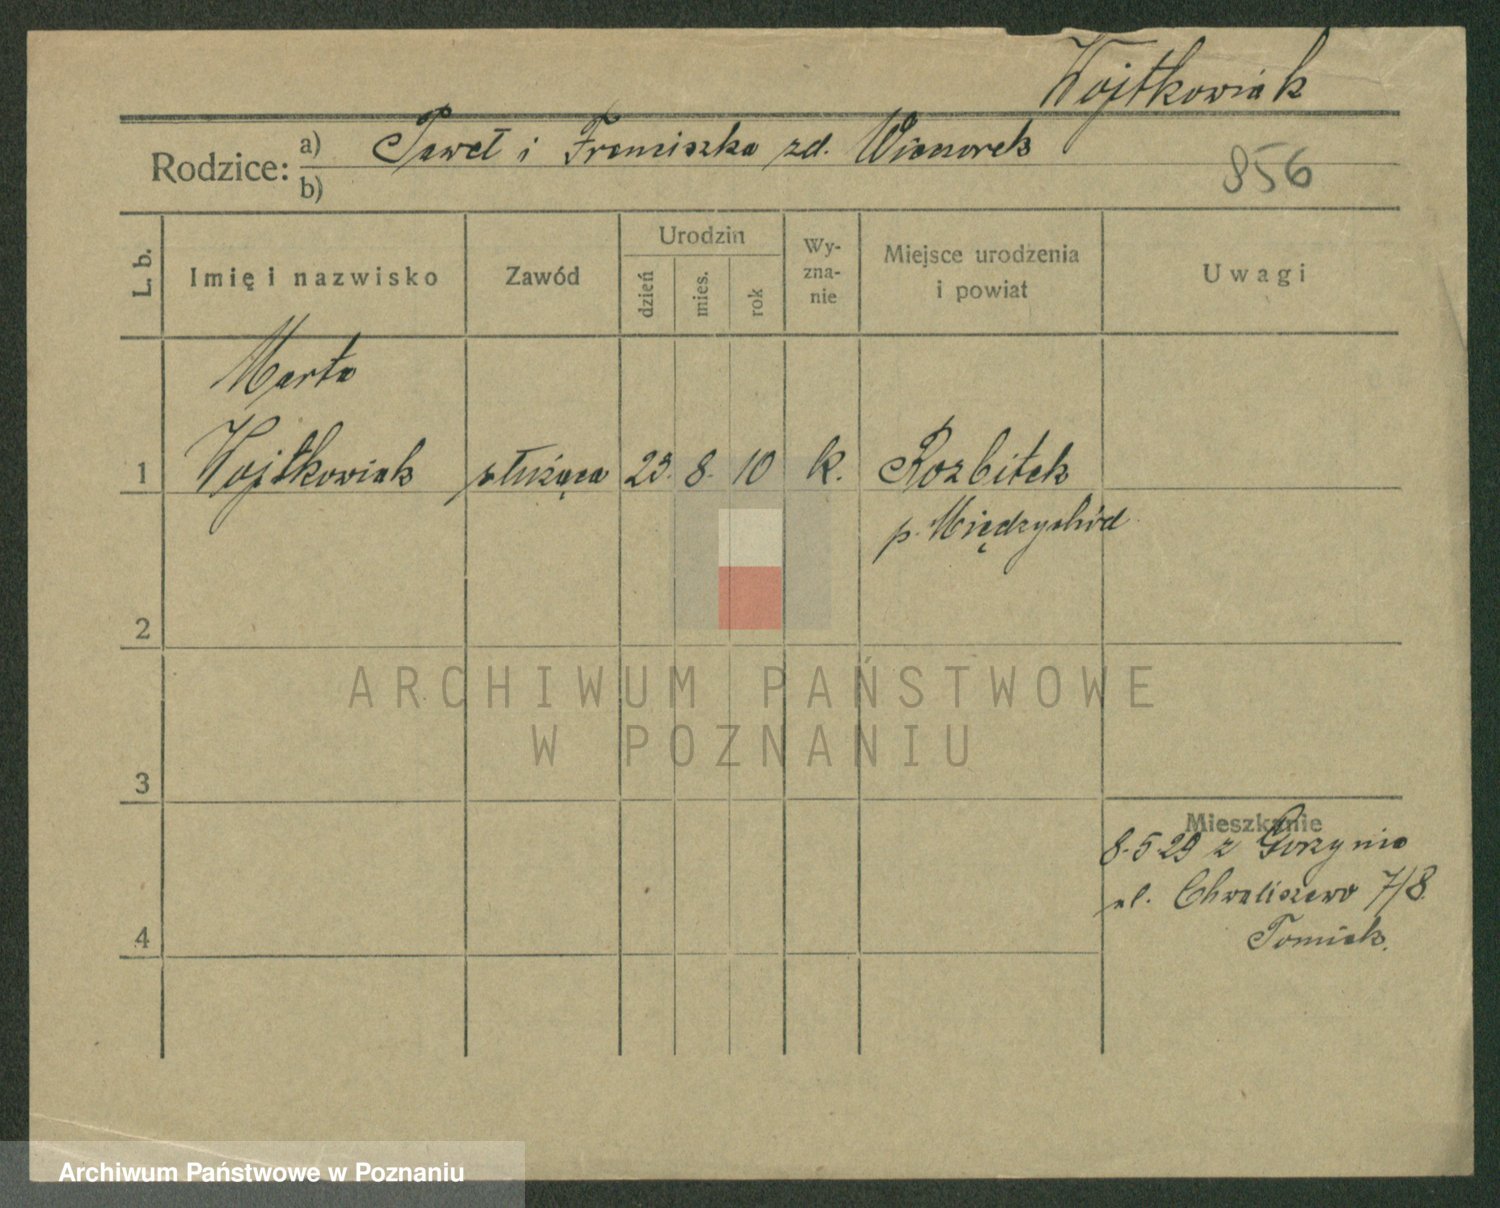 Wojtkowiak
Rodzice: a) Paweł i Franciszka zd. Wieczorek
b)
856
L. b. Imię i nazwisko Zawód Urodzin dzień mies. rok Wy-zna-nie Miejsce urodzenia i powiat Uwagi
Marta
1 Wojtkowiak służąca 23. 8. 10 k. Rozbitek
p. Międzychód
2
3
4
Mieszkanie
8.5.29 z Gorzynia
ul. Chwaliszewo 7/8.
Tomiak.
ARCHIWUM PAŃSTWOWE
W POZNANIU
Archiwum Państwowe w Poznaniu